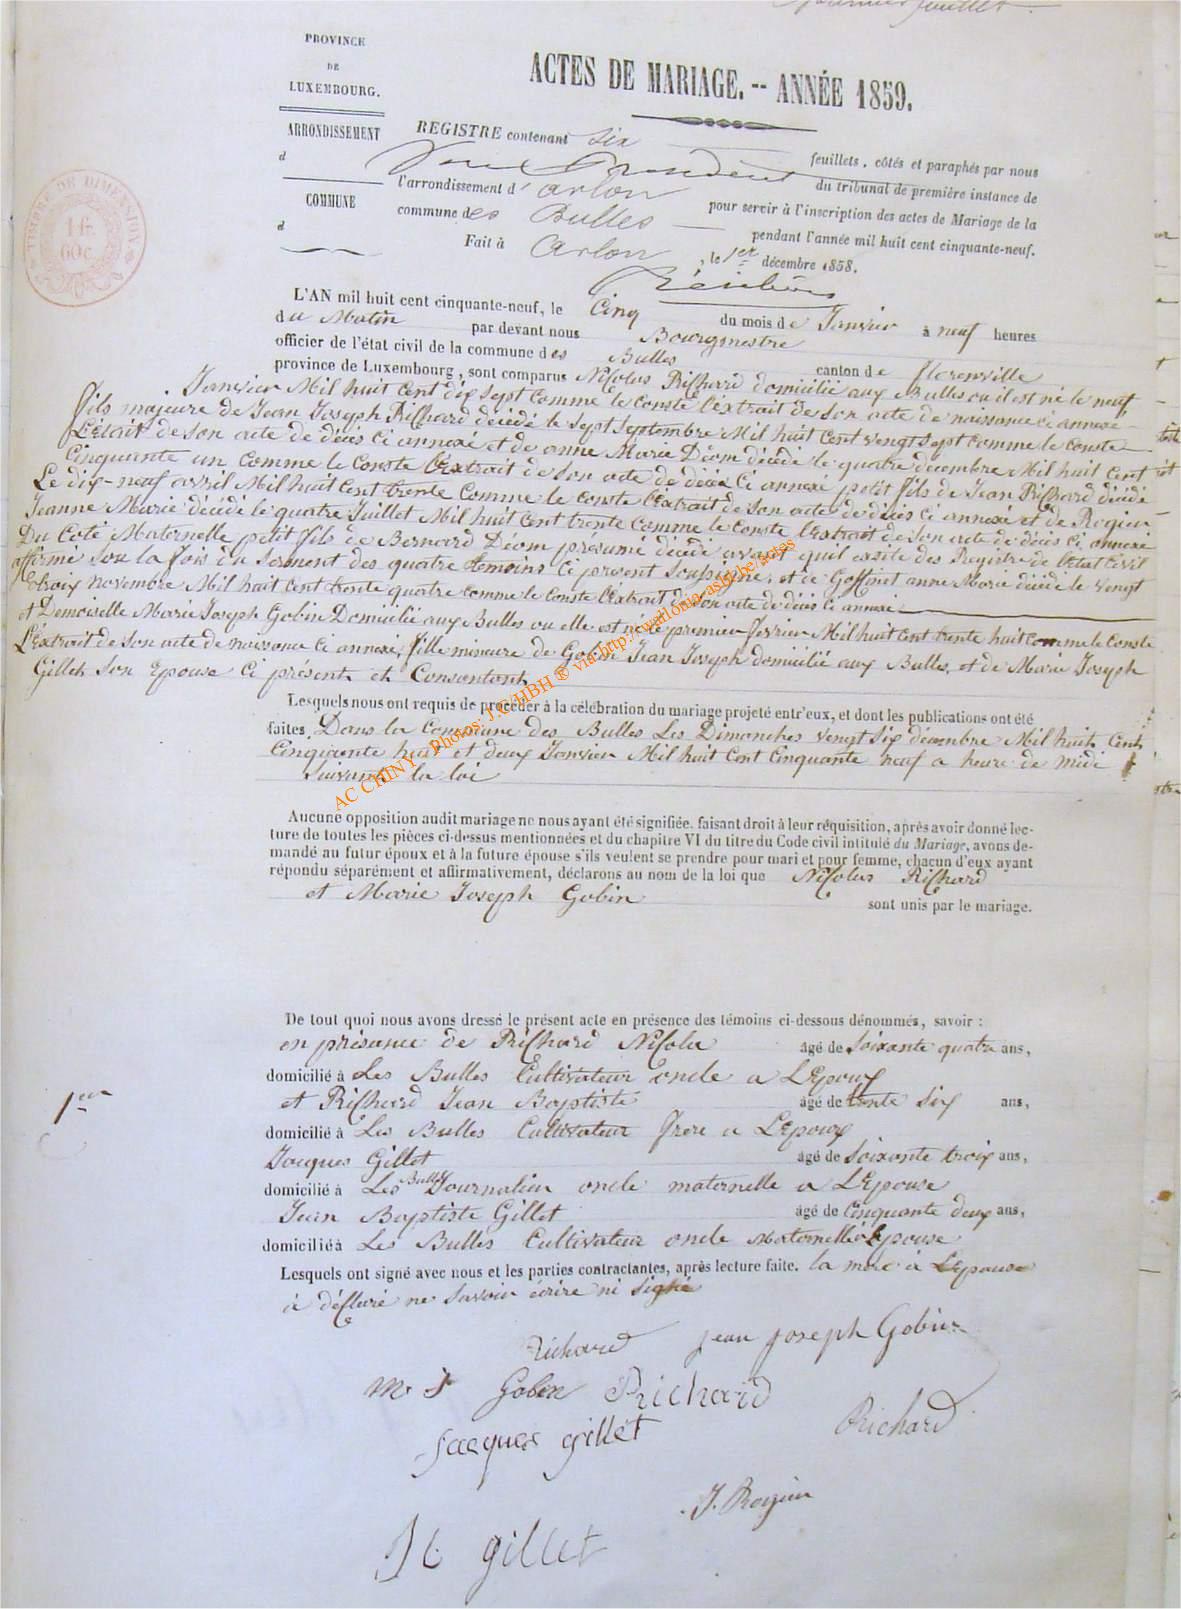 premier feuillet.
PROVINCE
DE
LUXEMBOURG.
ARRONDISSEMENT
d
COMMUNE
d
TIMBRE DE DIMENSION
1 fr.
60 c.
ACTES DE MARIAGE. -- ANNÉE 1859.
REGISTRE contenant Six feuillets, côtés et paraphés par nous
Président du tribunal de première instance de
l'arrondissement d'Arlon pour servir à l'inscription des actes de Mariage de la
commune des Bulles pendant l'année mil huit cent cinquante-neuf.
Fait à Arlon, le 1er décembre 1858.
L'AN mil huit cent cinquante-neuf, le Cinq du mois de Janvier à neuf heures
du Matin par devant nous Bourgmestre
officier de l'état civil de la commune des Bulles canton de Florenville
province de Luxembourg, sont comparus Nicolas Richard domicilié aux Bulles ou il est né le neuf
Janvier Mil huit Cent dix Sept comme le Conste l'extrait de Son acte de naissance ci annexé
fils majeure de Jean Joseph Richard décédé le Sept Septembre Mil huit Cent vengt Sept comme le conste
L'Etrait de Son acte de décès Ci annexé et de anne Marie Déom décédé le quatre décembre Mil huit Cent
Cinquante un Comme le Conste l'Extrait de Son acte de décès Ci annexé petit fils de Jean Richard décédé
Le dix-neuf avril Mil huit Cent trente Comme le Conste l'Extrait de Son acte de décès ci annexé et de Rogier
Jeanne Marie décédé le quatre Juillet Mil huit Cent trente comme le Conste l'Extrait de Son acte de décès ci annexé
Du Coté Maternelle petit fils de Bernard Déom présumé décédé avant quil existe des Registre de l'Etat Civil
affirmé Sou la fois du Serment des quatre témoins Ci présent Soussigné, et de Goffinet anne Marie décédé le vengt
troix novembre Mil huit Cent trente quatre comme le Conste l'Extrait de Son acte de décès Ci annexé
et Demoiselle Marie Joseph Gobin Domiciliée aux Bulles ou elle est né le premier Fevrier Mil huit Cent trente huit comme le Conste
l'Extrait de Son acte de naissance Ci annexé, fille mineure de Gobin Jean Joseph domicilié aux Bulles, et de Marie Joseph
Gillet Son Epouse Ci présent et Consentant
Lesquels nous ont requis de procéder à la célébration du mariage projeté entr'eux, et dont les publications ont été
faites Dans la Commune des Bulles Les Dimanches vengt Six décembre Mil huit Cent
Cinquante huit et deux Janvier Mil huit Cent Cinquante neuf a heure de midi
Suivant la loi
Aucune opposition audit mariage ne nous ayant été signifiée, faisant droit à leur réquisition, après avoir donné lec-
ture de toutes les pièces ci-dessus mentionnées et du chapitre VI du titre du Code civil intitulé du Mariage, avons de-
mandé au futur époux et à la future épouse s'ils veulent se prendre pour mari et pour femme, chacun d'eux ayant
répondu séparément et affirmativement, déclarons au nom de la loi que Nicolas Richard
et Marie Joseph Gobin sont unis par le mariage.
De tout quoi nous avons dressé le présent acte en présence des témoins ci-dessous dénommés, savoir :
en présance de Richard Nicolas âgé de Soixante quatre ans,
domicilié à Les Bulles Cultivateur oncle a L'Epoux
et Richard Jean Baptiste âgé de trente Six ans,
1er
domicilié à Les Bulles Cultivateur frere a L'Epoux
Jacques Gillet âgé de Soixante troix ans,
domicilié à Les Bulles Journalier oncle maternelle a L'Epouse
Jean Baptiste Gillet âgé de Cinquante deux ans,
domicilié à Les Bulles Cultivateur oncle Maternelle a Lepouse
Lesquels ont signé avec nous et les parties contractantes, après lecture faite. la mère à L'Epouse
à déclaré ne Savoir écrire ni Signé
Richard Jean Joseph Gobin
M J Gobin Richard
Jacques Gillet Richard
J. Rogier
Gillet
AC CHINY - Photos: J.C HBH ® via http://wallonia-asbl.be/actes